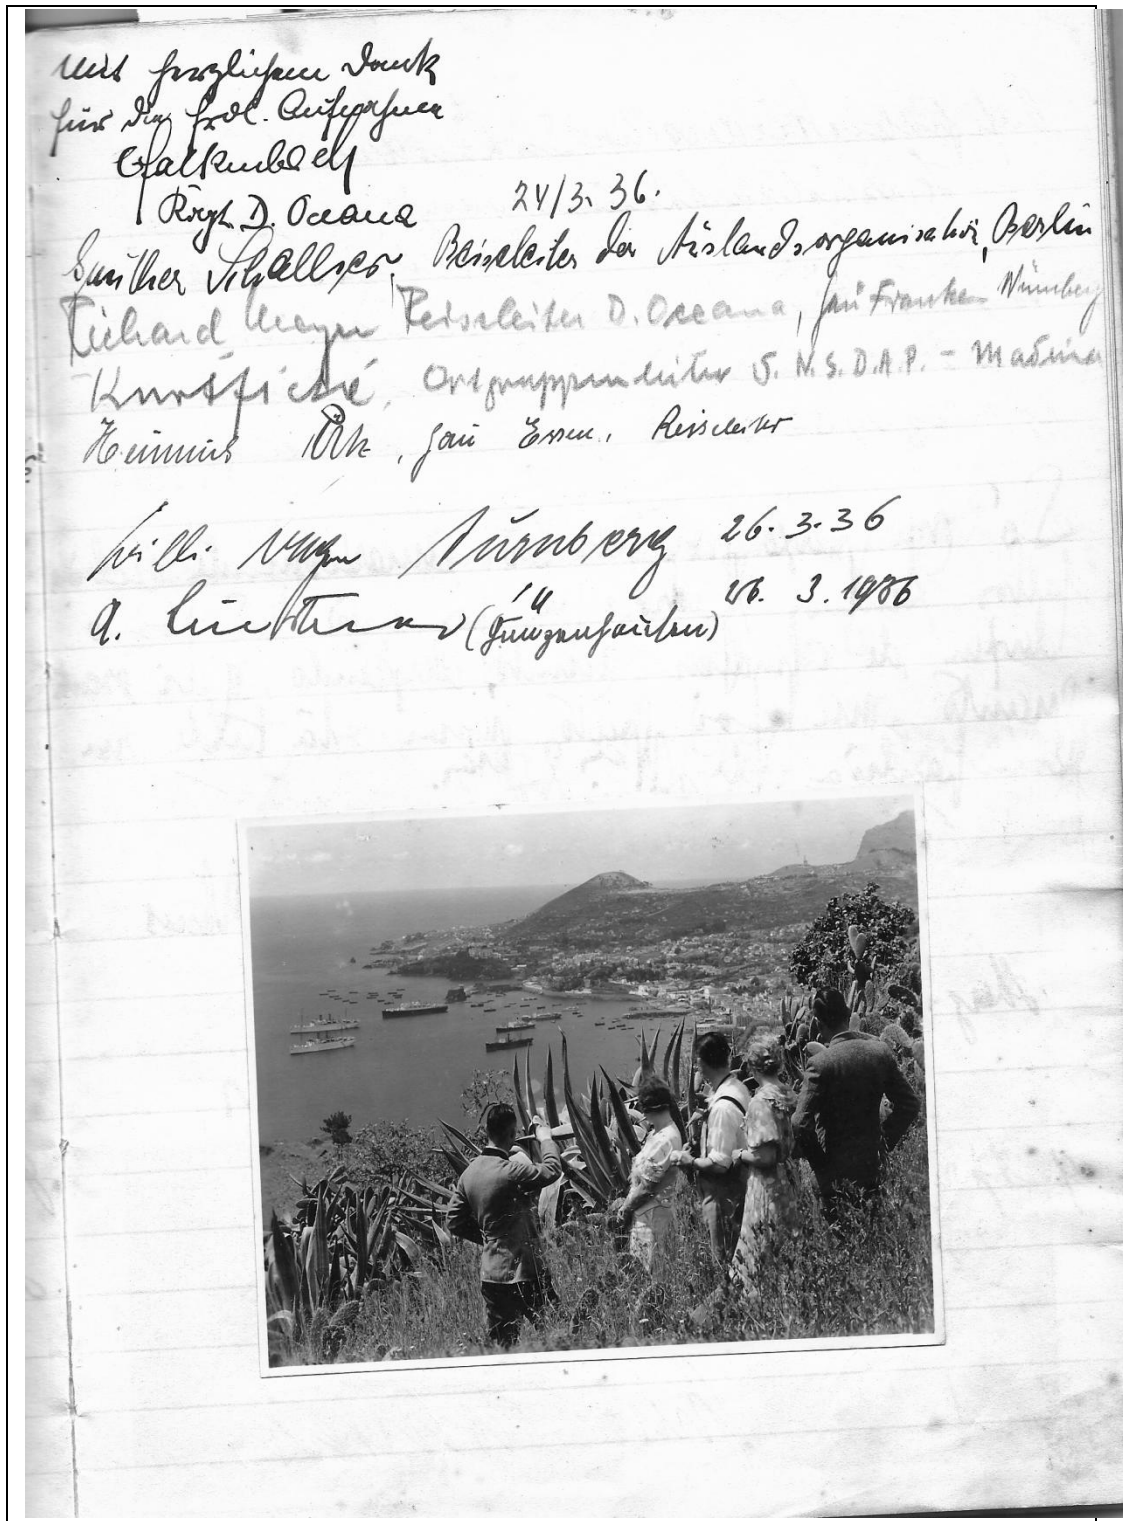 Mit herzlichem Dank
für die frdl. Aufnahme
Falkenbach
D. Oceana
24/3. 36.
Günther Reiseleiter der Auslandsorganisation, Berlin
Richard Meyer Reiseleiter D. Oceana, Gau Franken Nürnberg
Kurt Ortsgruppenleiter d. N.S.D.A.P. - Madeira
Gau Essen, Reiseleiter
Willi Nürnberg 26.3.36
A. (Gunzenhausen) 26. 3. 1936